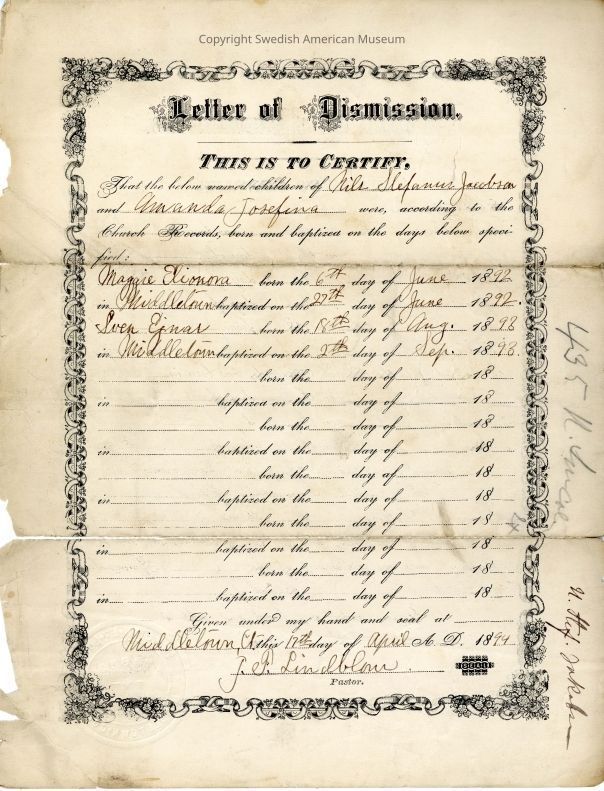 Copyright Swedish American Museum
Letter of Dismission.
THIS IS TO CERTIFY,
That the below named children of Nils Stefanus Jacobson
and Amanda Josefina were, according to the
Church Records, born and baptized on the days below speci-
fied:
Maggie Elionora born the 6th day of June 1892
in Middletown baptized on the 27th day of June 1892
Sven Ejnar born the 18th day of Aug. 1893
in Middletown baptized on the 2th day of Sep. 1893
born the day of 18
in baptized on the day of 18
born the day of 18
in baptized on the day of 18
born the day of 18
in baptized on the day of 18
born the day of 18
in baptized on the day of 18
born the day of 18
in baptized on the day of 18
Given under my hand and seal at
Middletown Ct this 17th day of April A. D. 1894
J. P. Lindblom
SEAL
Pastor.
435 N.